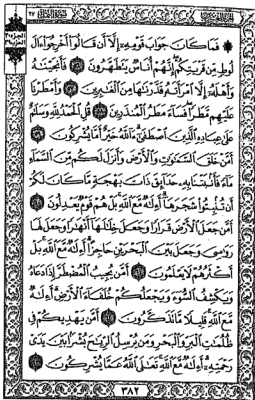 ۞ فَمَا كَانَ جَوَابَ قَوْمِهِ إِلَّا أَن قَالُوا أَخْرِجُوا ءَالَ
لُوطٍ مِّن قَرْيَتِكُمْ إِنَّهُمْ أُنَاسٌ يَتَطَهَّرُونَ ٥٦ فَأَنجَيْنَٰهُ
وَأَهْلَهُ إِلَّا امْرَأَتَهُ قَدَّرْنَٰهَا مِنَ الْغَٰبِرِينَ ٥٧ وَأَمْطَرْنَا
عَلَيْهِم مَّطَرًا فَسَاءَ مَطَرُ الْمُنذَرِينَ ٥٨ قُلِ الْحَمْدُ لِلَّهِ وَسَلَٰمٌ
عَلَىٰ عِبَادِهِ الَّذِينَ اصْطَفَىٰ ءَاللَّهُ خَيْرٌ أَمَّا يُشْرِكُونَ ٥٩
أَمَّنْ خَلَقَ السَّمَٰوَٰتِ وَالْأَرْضَ وَأَنزَلَ لَكُم مِّنَ السَّمَاءِ
مَاءً فَأَنبَتْنَا بِهِ حَدَائِقَ ذَاتَ بَهْجَةٍ مَّا كَانَ لَكُمْ
أَن تُنبِتُوا شَجَرَهَا أَءِلَٰهٌ مَّعَ اللَّهِ بَلْ هُمْ قَوْمٌ يَعْدِلُونَ ٦٠
أَمَّن جَعَلَ الْأَرْضَ قَرَارًا وَجَعَلَ خِلَٰلَهَا أَنْهَٰرًا وَجَعَلَ لَهَا
رَوَٰسِيَ وَجَعَلَ بَيْنَ الْبَحْرَيْنِ حَاجِزًا أَءِلَٰهٌ مَّعَ اللَّهِ بَلْ
أَكْثَرُهُمْ لَا يَعْلَمُونَ ٦١ أَمَّن يُجِيبُ الْمُضْطَرَّ إِذَا دَعَاهُ
وَيَكْشِفُ السُّوءَ وَيَجْعَلُكُمْ خُلَفَاءَ الْأَرْضِ أَءِلَٰهٌ
مَّعَ اللَّهِ قَلِيلًا مَّا تَذَكَّرُونَ ٦٢ أَمَّن يَهْدِيكُمْ فِي
ظُلُمَٰتِ الْبَرِّ وَالْبَحْرِ وَمَن يُرْسِلُ الرِّيَٰحَ بُشْرًا بَيْنَ يَدَيْ
رَحْمَتِهِ أَءِلَٰهٌ مَّعَ اللَّهِ تَعَٰلَى اللَّهُ عَمَّا يُشْرِكُونَ ٦٣
٣٨٢